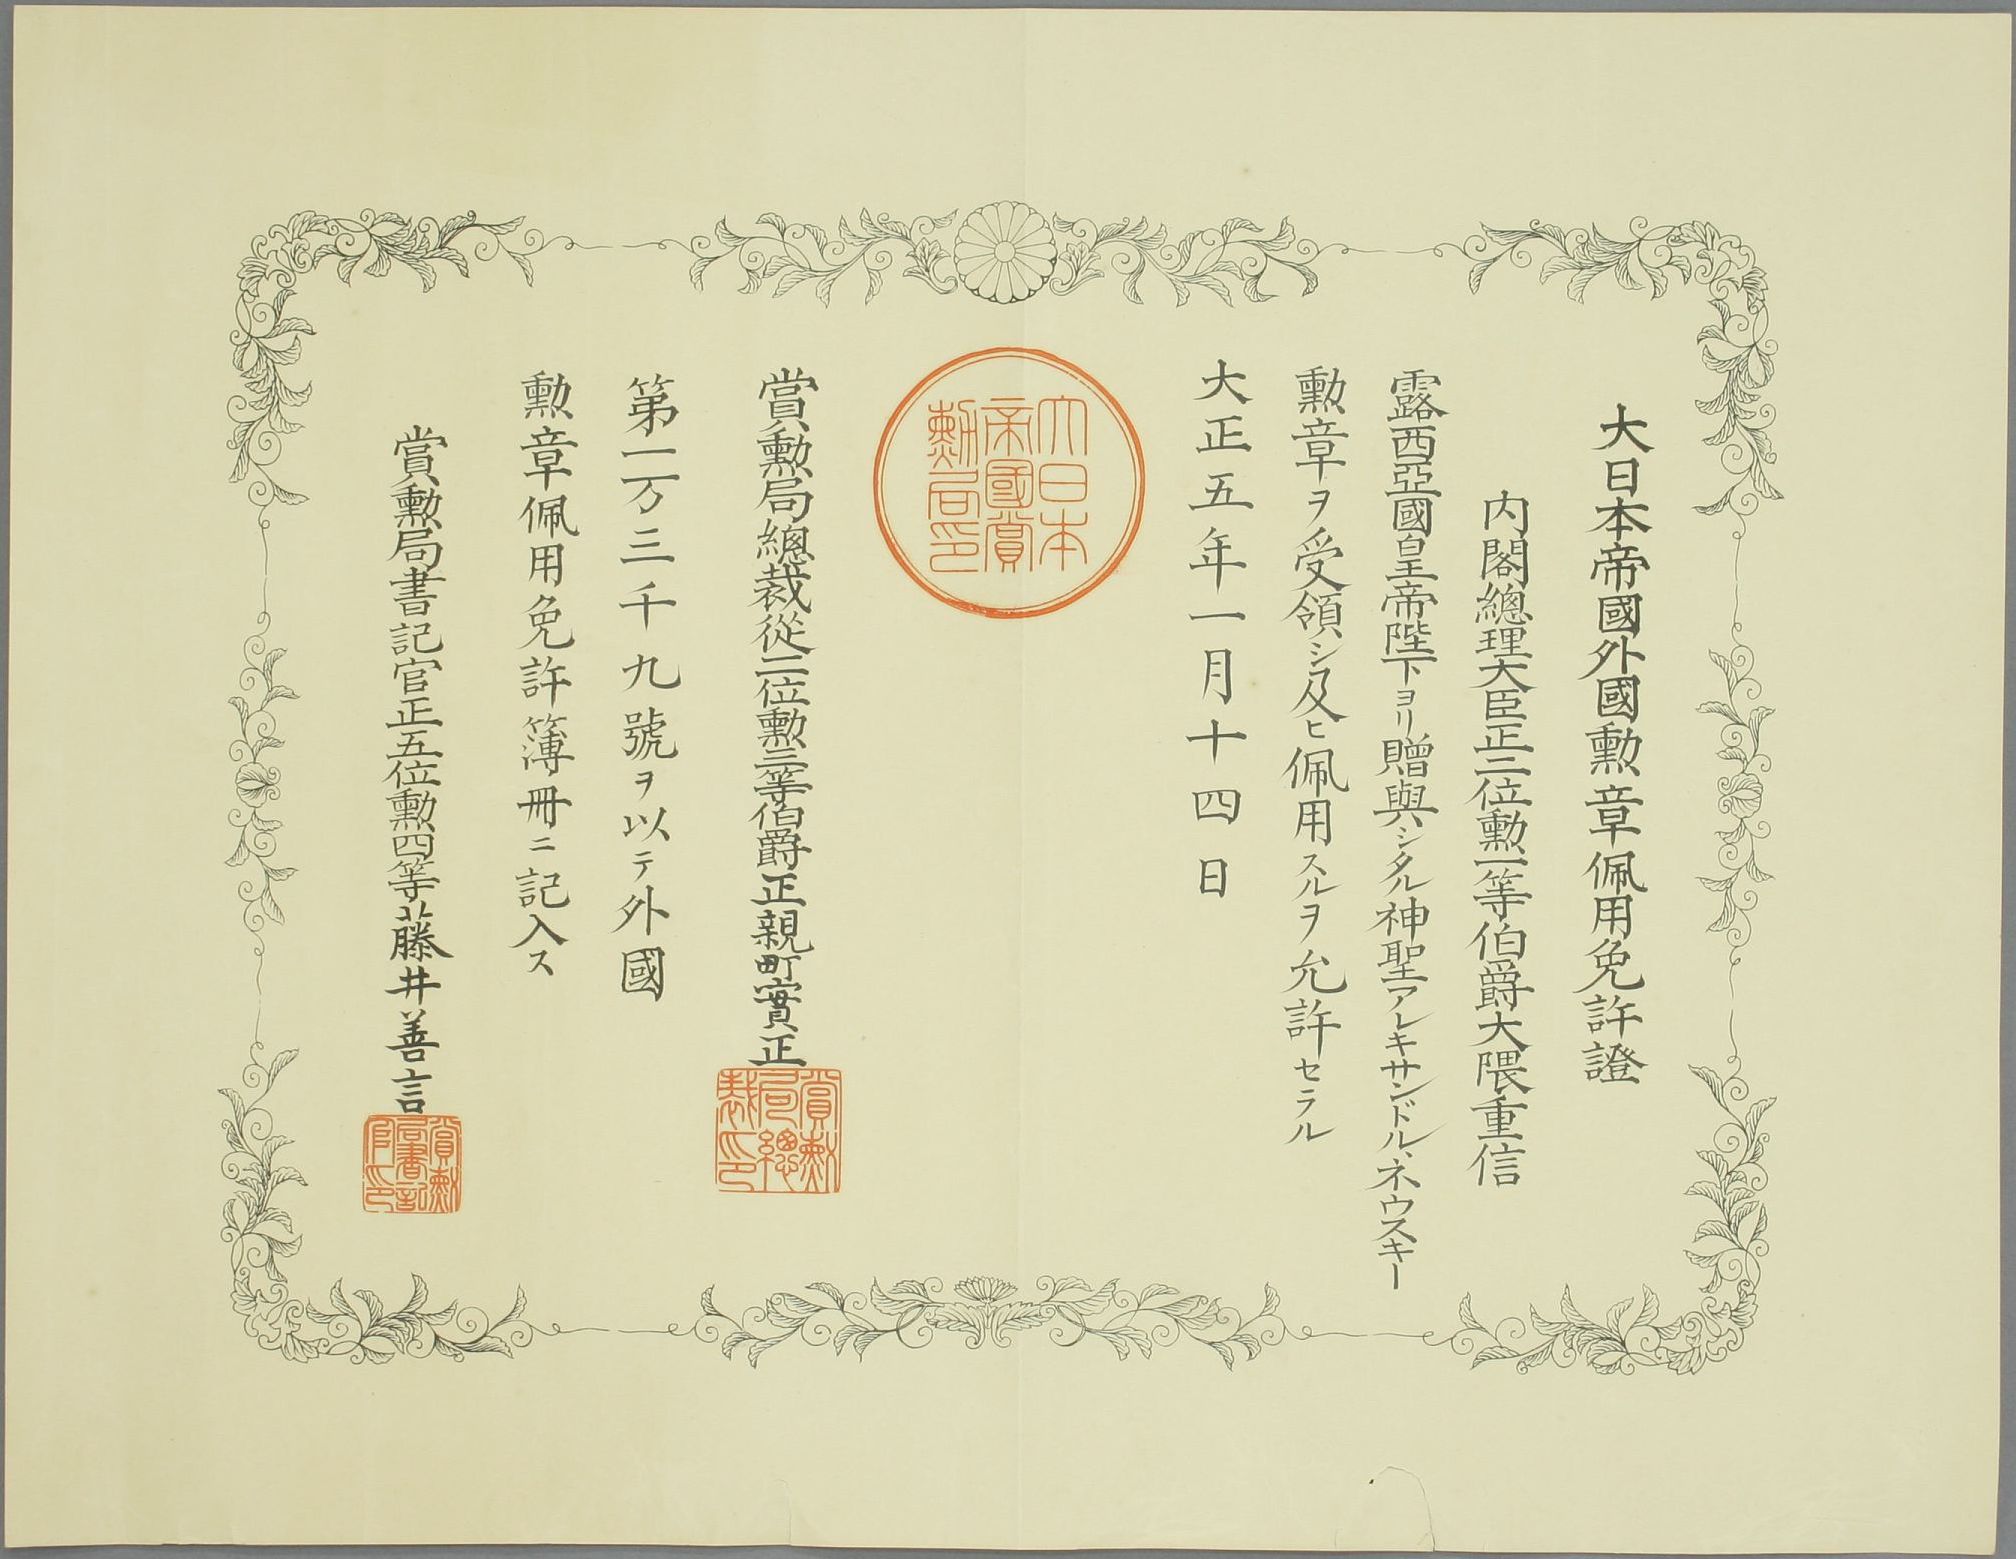 大日本帝國外國勲章佩用免許證
内閣總理大臣正二位勲一等伯爵大隈重信
露西亞國皇帝陛下ヨリ贈與シタル神聖アレキサンドル、ネウスキー
勲章ヲ受領シ及ヒ佩用スルヲ允許セラル
大正五年一月十四日
大日本
帝國賞
勲局印
賞勲局總裁從二位勲三等伯爵正親町實正
賞勲
局總
裁印
第一万三千九號ヲ以テ外國
勲章佩用免許簿冊ニ記入ス
賞勲局書記官正五位勲四等藤井善言
賞勲
局書記
官印